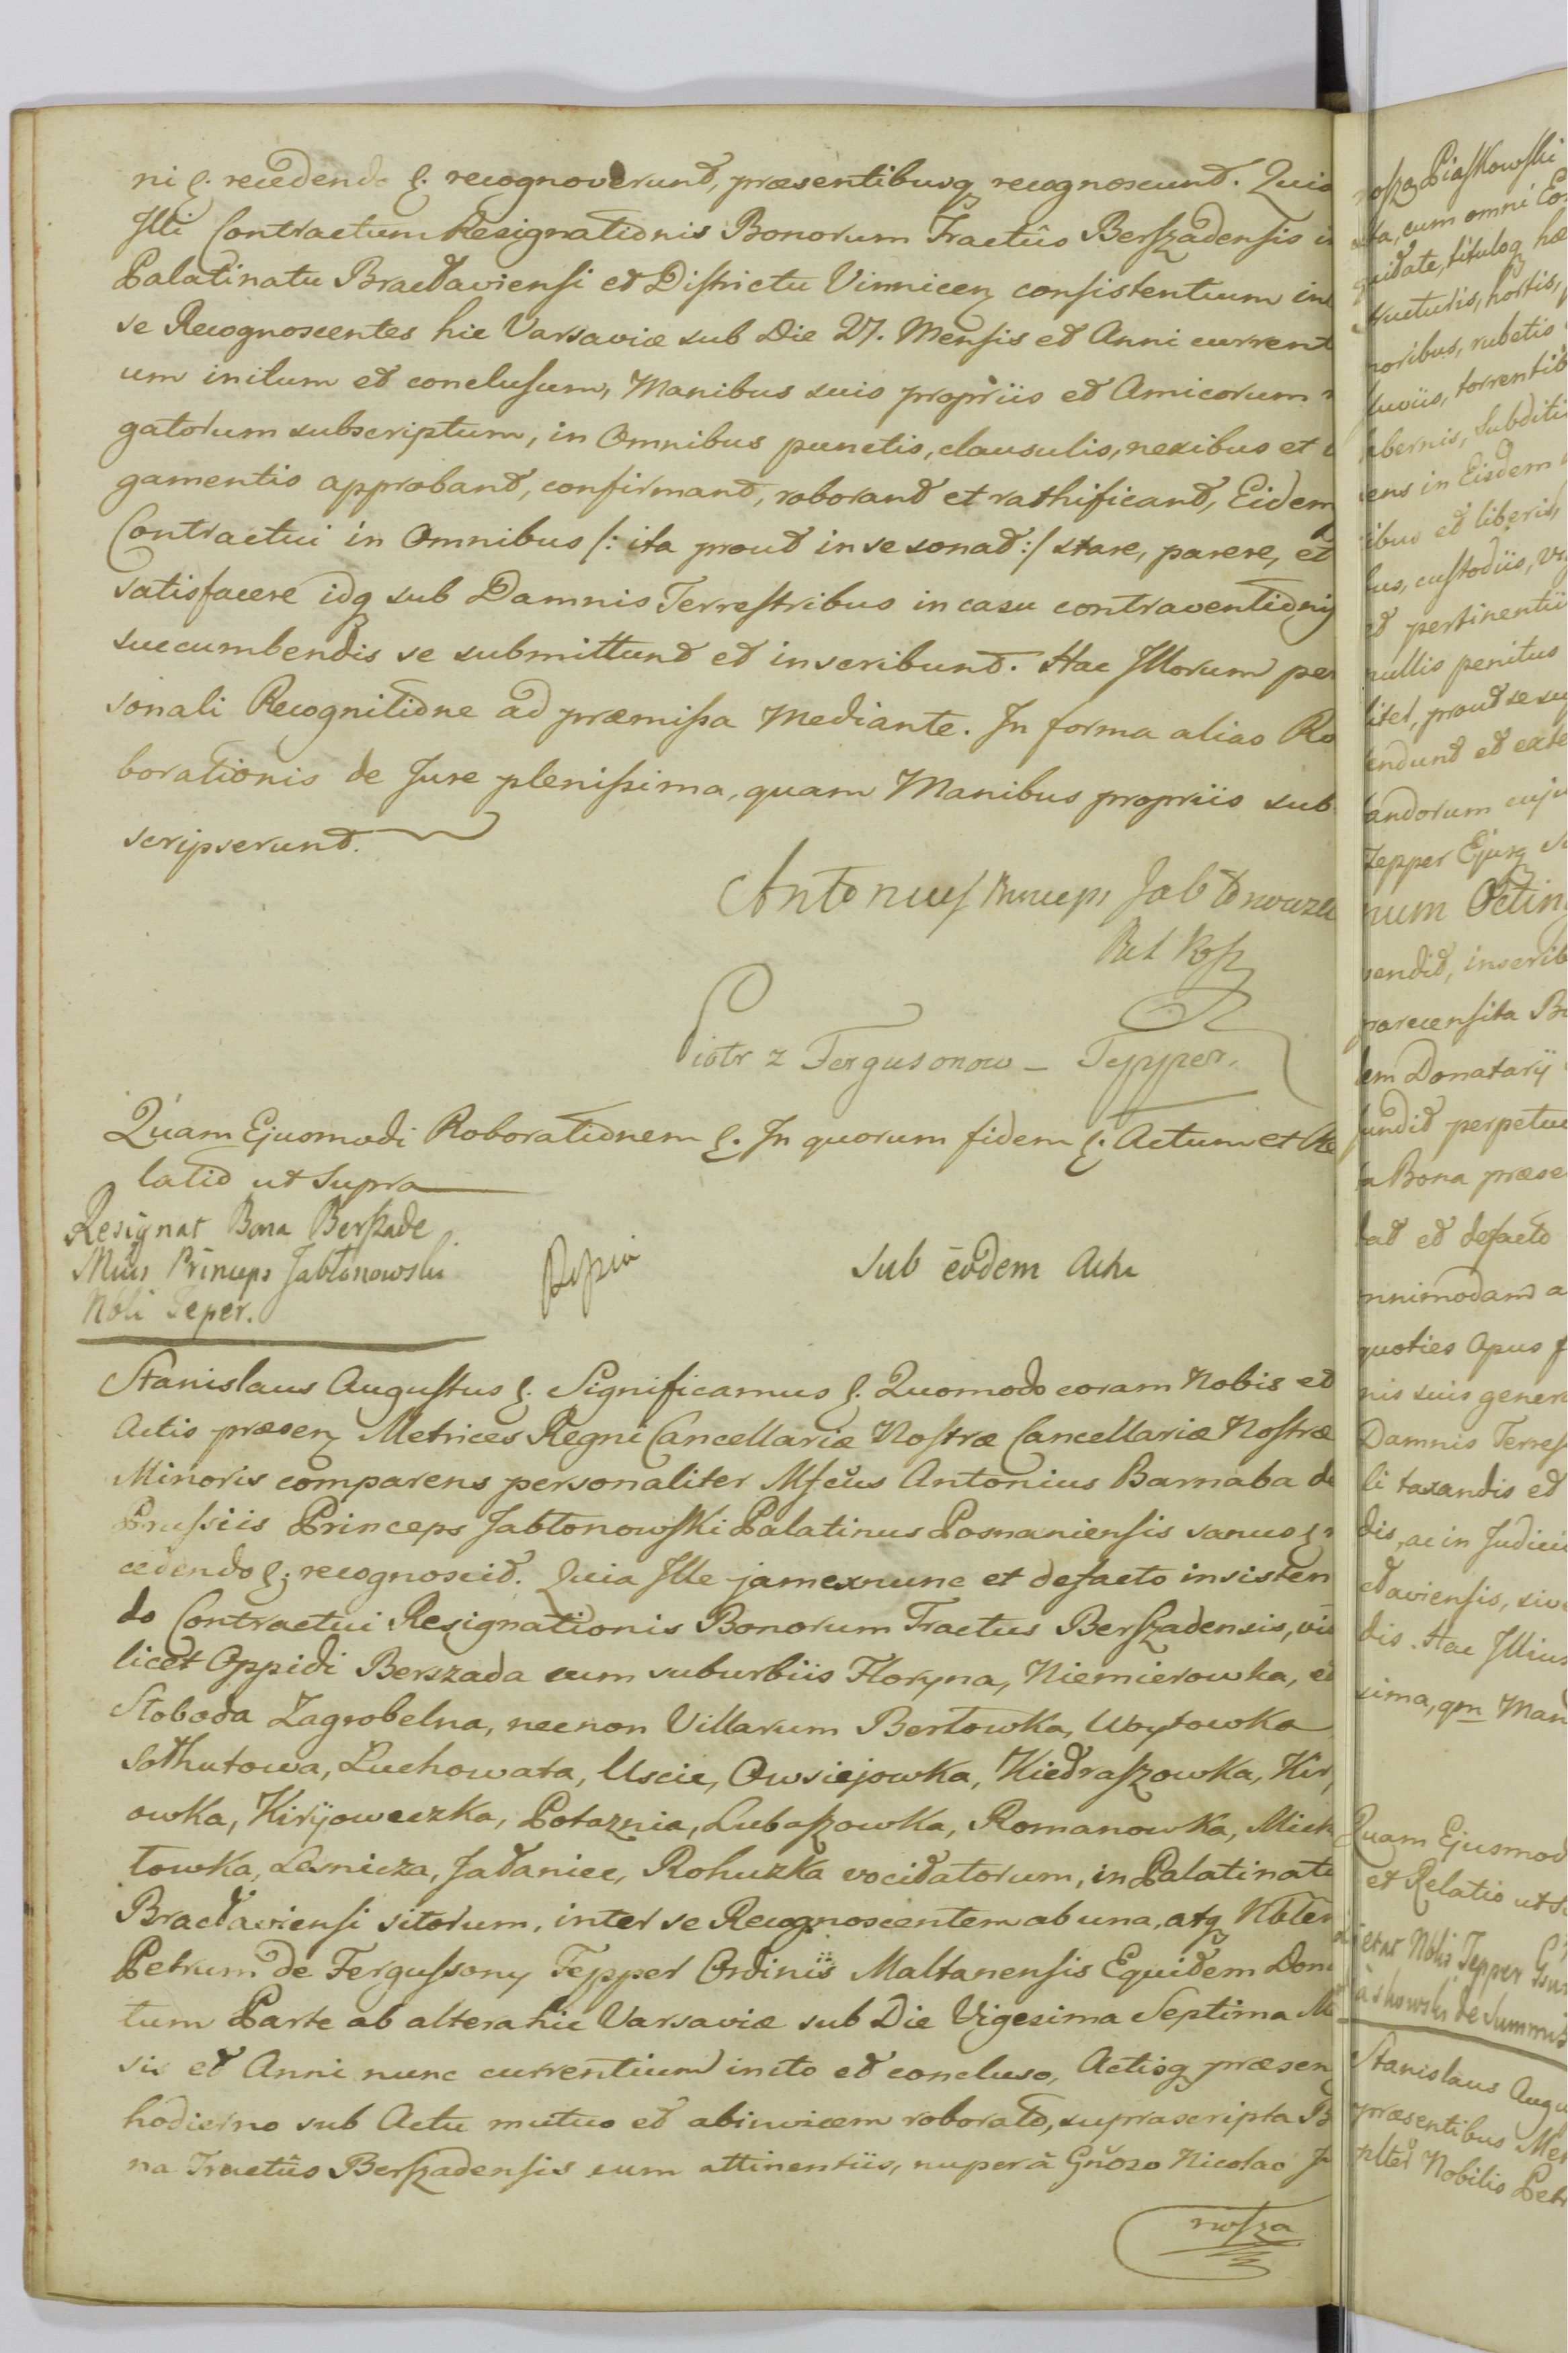 ni ę. recedendo ę. recognoverunt, præsentibusq recognoscunt. Quia
Illi Contractum Resignationis Bonorum Tractûs Berszadensis in
Palatinatu Bracłaviensi et Districtu Vinnicen consistentium int
se Recognoscentes hic Varsaviæ sub Die 27. Mensis et Anni current
um initum et conclusum, Manibus suis propriis et Amicorum r
gatorum subscriptum, in Omnibus punctis, clausulis, nexibus et
gamentis approband, confirmand, roborand et rathificand, Eidem
Contractui in Omnibus /: ita prout in se sonat :/ stare, parere, et
satisfacere idq sub Damnis Terrestribus in casu contraventionis
succumbendis se submittund et inscribunt. Hac Illorum per
sonali Recognitione ad præmissa Mediante. In forma alias Ro
borationis de Jure plenissima, quam Manibus propriis sub
scripserunt.
Antonius Princeps Jabłonowski
Piotr z Fergusonow - Tepper.
Quam Ejusmodi Roborationem ę. In quorum fidem ę. Actum et Re
latio ut Supra
Resignat Bona Berszade
Mcus Princeps Jabłonowski
Nbli Teper.
Sub eodem Actu
Stanislaus Augustus ę. Significamus ę. Quomodo coram Nobis et
Actis præsen Metrices Regni Cancellariæ Nostræ Cancellariæ Nostræ
Minoris comparens personaliter Mfcus Antonius Barnaba de
Prussiis Princeps Jabłonowski Palatinus Posnaniensis sanus ę. r
cedendo ę; recognoscit. Quia Ille jam exnunc et defacto insisten
do Contractui Resignationis Bonorum Tractus Berszadensis, vid
licet Oppidi Berszada cum suburbiis Floryna, Niemierowka, et
Słoboda Zagrobelna, necnon Villarum Berłowka, Woytowka
Sołhutowa, Luchowata, Uscie, Owsiejowka, Kiedraszowka, Kir,
owka, Kiryjoweczka, Potaznia, Lubaszowka, Romanowka, Mich
łowka, Lesnicza, Jałaniec, Rohuzka vocitatorum, in Palatinatu
Bracłaviensi sitorum, inter se Recognoscentem ab una, atq Nblem
Petrum de Fergussony Tepper Ordinis Maltanensis Equitem Dona
tum Parte ab altera hic Varsaviæ sub Die Vigesima Septima Me
sis et Anni nunc currentium inito et concluso, Actisq præsen
hodierno sub Actu mutuo et abinvicem roborato, suprascripta Bo
na Tractûs Berszadensis cum attinentiis, nuper à Gñoso Nicolao Ja
rosza
rosza Piaskowski
cta, cum omni
quidate, tituloq hæ
structuris, hortis,
moribus, rubetis
fluviis, torrentib
abernis, Subditi
ens in Eisdem
ibus et liberis,
bus, custodiis,
et pertinentii
nullis penitus
litet, prout se
endunt et exte
andorum cuju
Tepper Ejusq
num Octin
vendit, inscrib
parecensita Bo
dem Donatarij
fundit perpetuo
ta Bona præse
dat et defacto
mnimodam a
quoties Opus f
nis suis genera
Damnis Terres
li taxandis et
dis, ac in Judicii
cłaviensis, sive
dis. Hac Illius
sima, qm Man
Quam Ejusmod
et Relatio ut S
Nblis Tepper
Piaskowski de Summis
Stanislaus Augu
præsentibus Met
plter Nobilis Petr